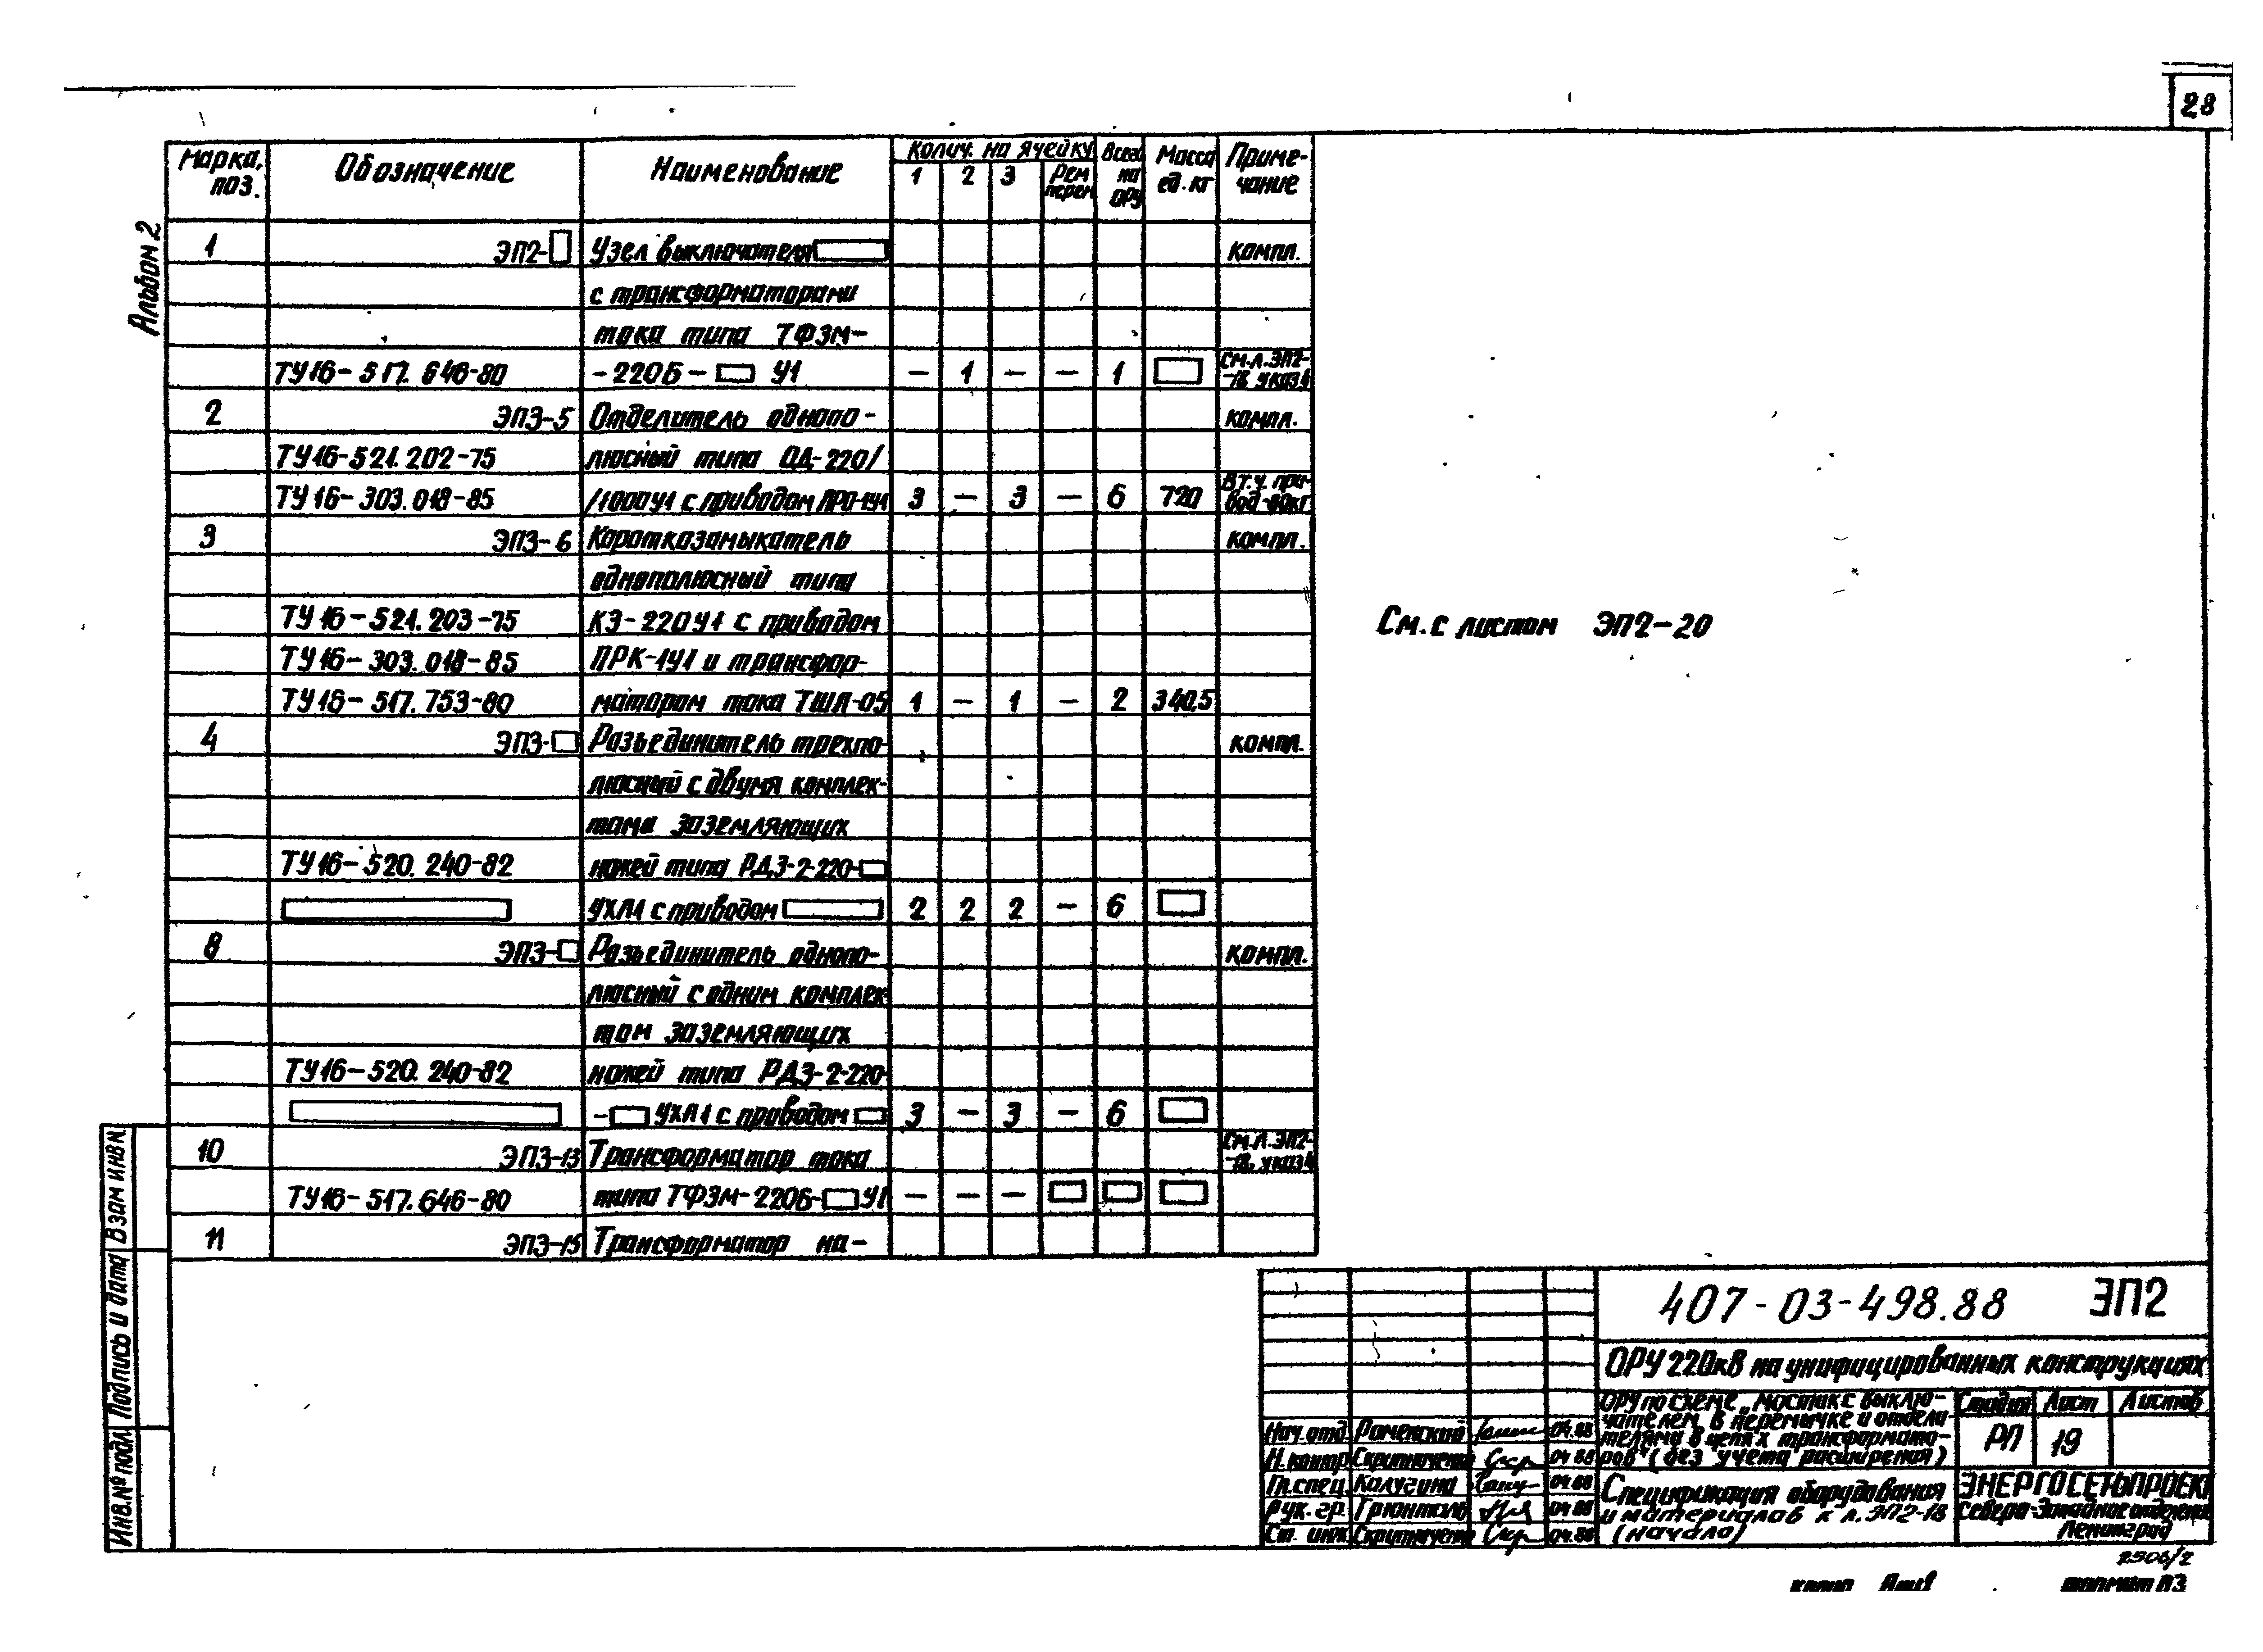 28
Альбом 2
Марка, поз. Обозначение Наименование Колич. на ячейку Всего на ОРУ Масса ед. кг Приме-чание
1 2 3 Рем перем
1 ЭП2-□ Узел выключателя □ компл.
с трансформаторами
тока типа ТФЗМ-
ТУ16-517.646-80 -220Б-□ У1 — 1 — — 1 □ См.л.ЭП2-18, указ4
2 ЭПЗ-5 Отделитель однопо- компл.
ТУ16-521.202-75 люсный типа ОД-220/
ТУ16-303.018-85 /1000У1 с приводом ПРО-1У1 3 — 3 — 6 720 В т.ч. при-вод-80кг
3 ЭПЗ-6 Короткозамыкатель компл.
однополюсный типа
ТУ16-521.203-75 КЭ-220У1 с приводом
ТУ16-303.018-85 ПРК-1У1 и трансфор-
ТУ16-517.753-80 матором тока ТШЛ-05 1 — 1 — 2 340,5
4 ЭПЗ-□ Разъединитель трехпо- компл.
люсный с двумя комплек-
тами заземляющих
ТУ16-520.240-82 ножей типа РДЗ-2-220-□
□ УХЛ1 с приводом □ 2 2 2 — 6 □
8 ЭПЗ-□ Разъединитель однопо- компл.
люсный с одним комплек
том заземляющих
ТУ16-520.240-82 ножей типа РДЗ-2-220-
□ -□ УХЛ1 с приводом □ 3 — 3 — 6 □
10 ЭПЗ-13 Трансформатор тока См.л.ЭП2-18, указ4
ТУ16-517.646-80 типа ТФЗМ-220Б-□У1 — — — □ □ □
11 ЭПЗ-15 Трансформатор на-
См. с листом ЭП2-20
Взам инв.н.
Подпись и дата
Инв.№ подл.
407-03-498.88 ЭП2
ОРУ 220кВ на унифицированных конструкциях
ОРУ по схеме „мостик с выклю-
чателем в перемычке и отдели-
телями в цепях трансформато-
ров" (без учета расширения)
Стадия Лист Листов
РП 19
Нач.отд. Роменский 04.88
Н.контр. Скрипниченко 04 88
Гл.спец. Калугина 04.88
Рук.гр. 04 88
Ст. инж. Скрипниченко 04.88
Спецификация оборудования
и материалов к л.ЭП2-18
(начало)
ЭНЕРГОСЕТЬПРОЕКТ
Северо-Западное отделение
Ленинград
2506/2
формат А3